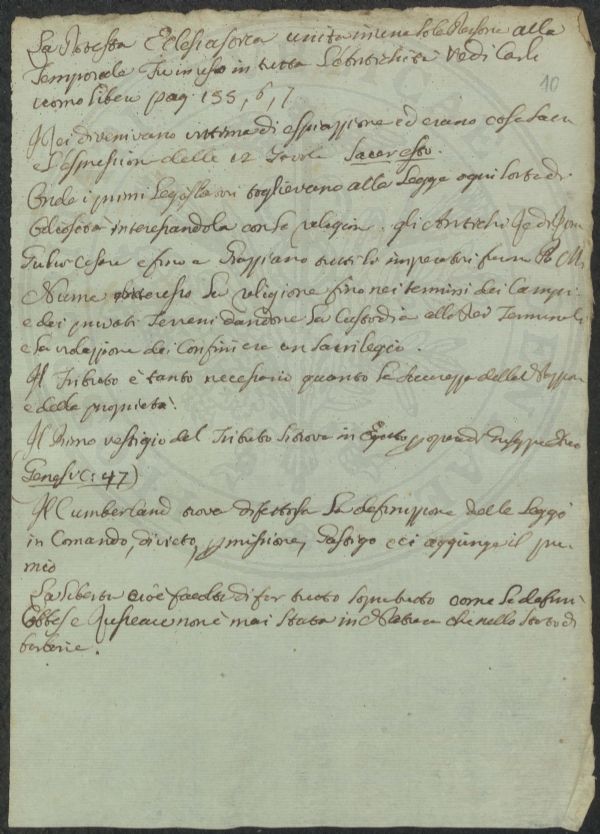 La Potestà Eclesiastica unita in una sola Persona alla
Temporale fu in uso in tutta l'Antichità Vedi Carli
uomo libero pag 155, 6, 7
10
I Rei divenivano vittima di espiazione ed erano cosa Sacra
e l'espression delle 12 Tavole Sacer esto.
Onde i primi Legislatori toglievano alla Legge ogni sorta di
odiosità interessandola con la religion. gli Antichi Re di Roma
Giulio Cesare e fino a Graziano tutti li imperatori furon P. M.
Numa interessò la religione fino nei termini dei Campi
e dei privati Terreni dandone la Custodia alli Dei Terminali
e la violazione dei Confini era un Sacrilegio.
Il Tributo è tanto necesario quanto la sicurezza della
e della proprietà.
Il Primo vestigio del Tributo si trova in Egitto
Genesi C: 47)
Il Cumberland trova difettosa la definizione delle Leggi
in Comando, divieto, permissione, Gastigo e ci aggiunge il pre-
mio
La libertà cioè facoltà di far tutto come la definì
Obbes e non è mai stata in Natura che nello stato di
barbarie.